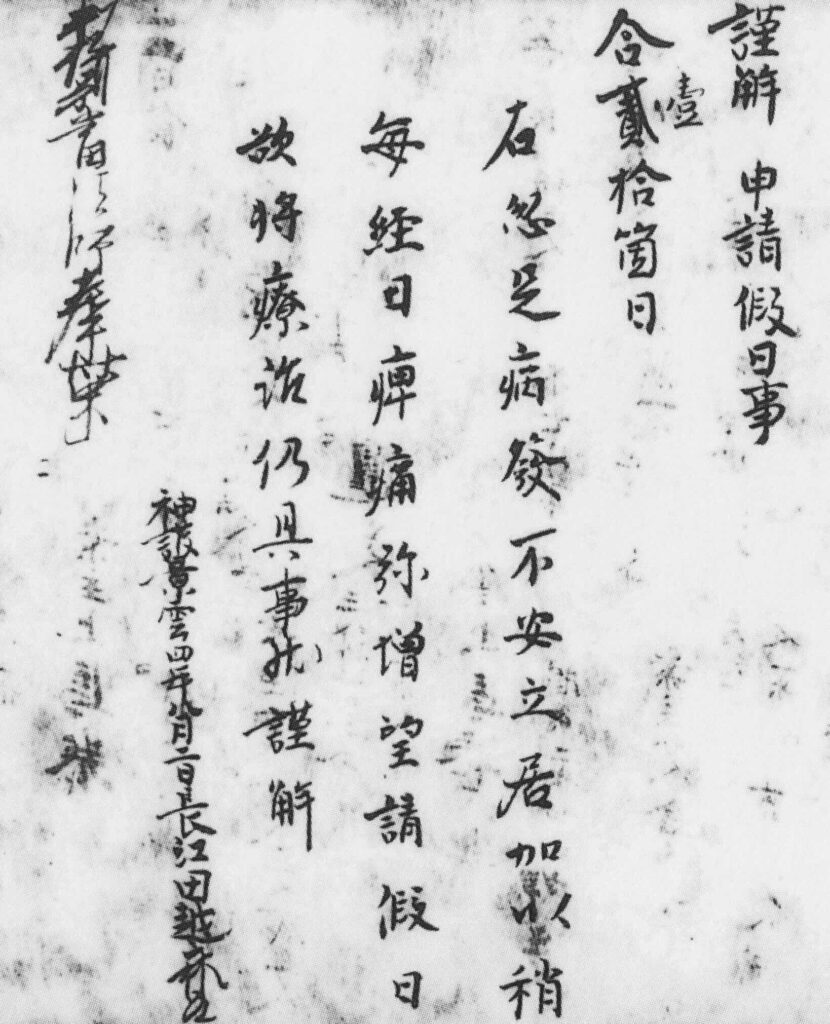 謹解 申請假日事
合貳拾箇日
壹
右忽足病發不安立居加以稍
每經日痺痛弥增望請假日
欲將療治仍具事状謹解
神護景雲四年八月二日長江田越麻呂
法師奉榮